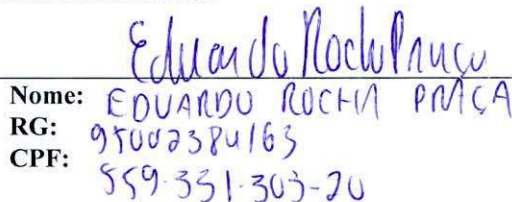 Eduardo Rocha Praça
Nome: EDUARDO ROCHA PRAÇA
RG: 95002384163
CPF: 559.351.303-20